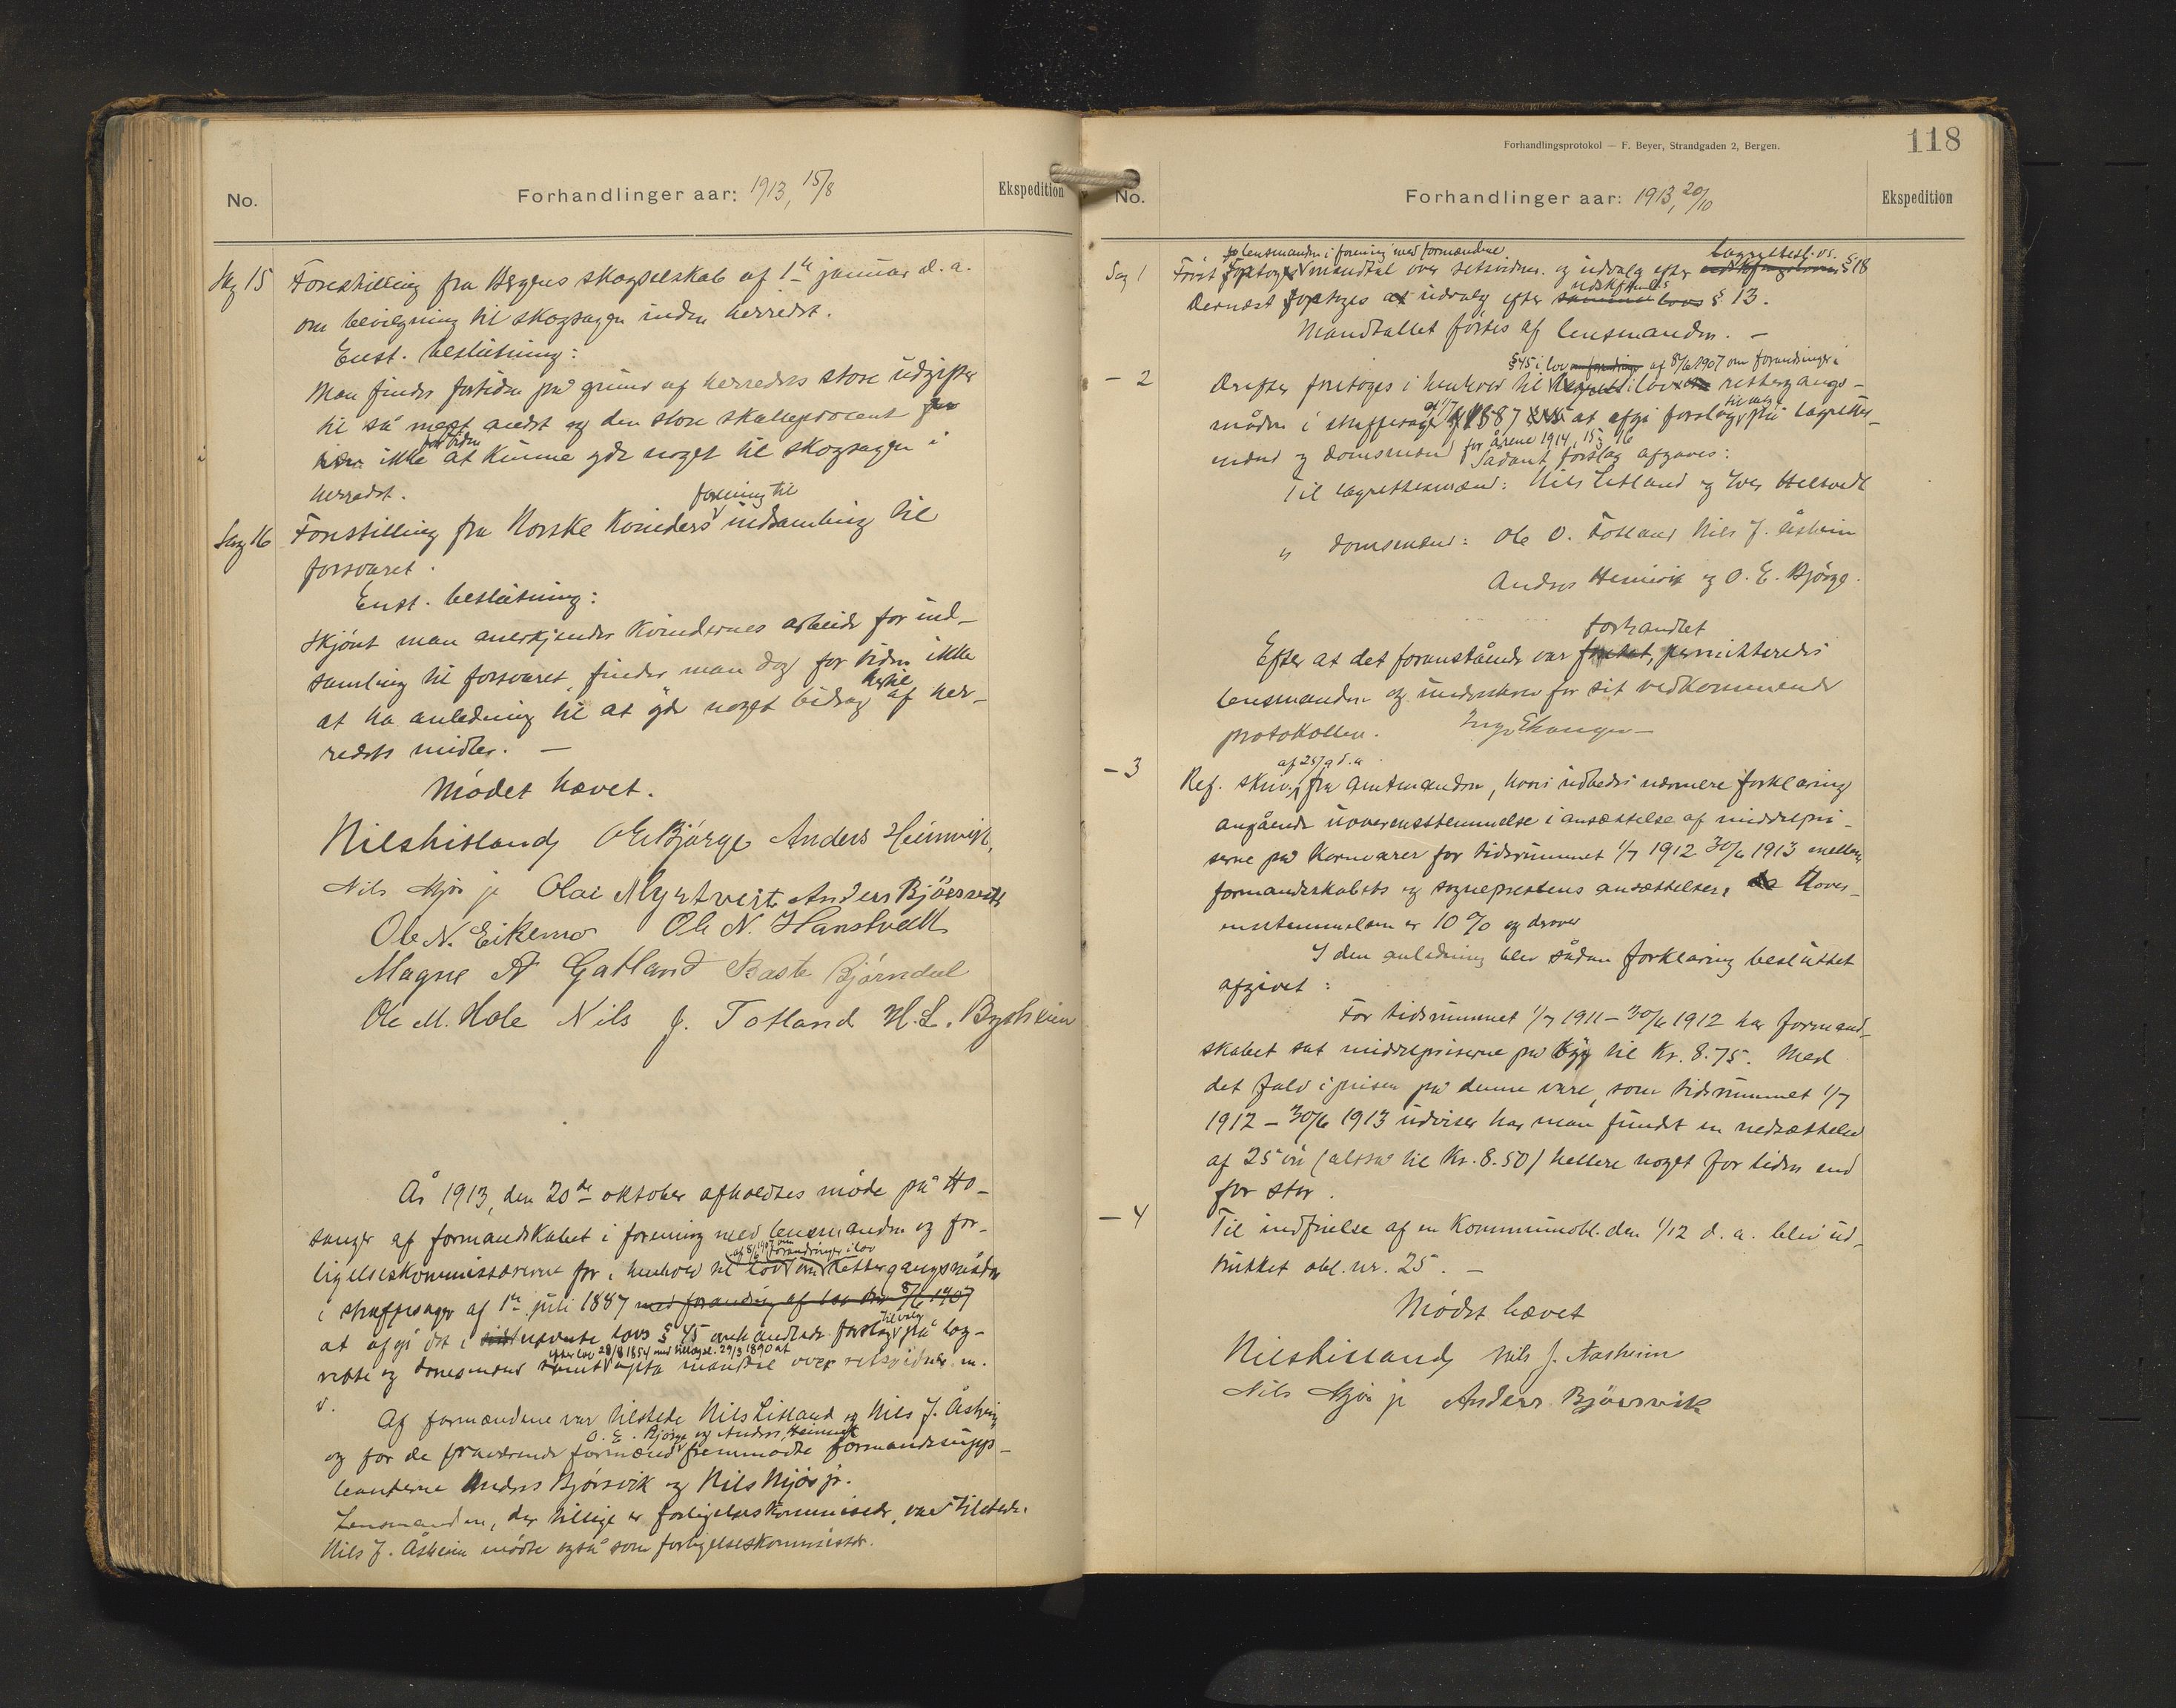 No. Forhandlinger aar: 1913, 15/8 Ekspedition
Sag 15 Forestilling fra Bergens skogselskab af 1ste januar d. a.
om bevilgning til skogsagen inden herredet.
Enst. beslutning:
Man finder fortiden på grund af herredets store udgifter
til så meget andet og den store skatteprocent
ikke for tiden at kunne yde noget til skogsagen i
herredet.
Sag 16 Forestilling fra Norske Kvinders forening til indsamling til
forsvaret.
Enst. beslutning:
Skjönt man anerkjender kvindernes arbeide for ind-
samling til forsvaret, finder man dog for tiden ikke
at ha anledning til at yde noget bidrag hertil af her-
redets midler. —
Mödet hævet.
Nils Litland O E Björge Anders Heimvik,
Nils Mjös jr Olai Myrtveit Anders Björsvik
Ole N. Eikemo Ole N. Hanstvedt
Magne A Gatland Baste Björndal
Ole M. Hole Nils J. Totland H. L. Bysheim
År 1913, den 20de oktober afholdtes möde på Ho-
sanger af formandskabet i forening med lensmanden og for-
ligelseskommissærerne for i henhold til lov af 8/6 1907 om forandringer i lov om rettergangsmåden
i straffesager af 1ste juli 1887 med forandring af lov 8/6 1907
at afgi det i nævnte lovs § 45 omhandlede forslag til valg på lag-
rette og domsmænd samt efter lov 28/8 1854 med tillægsl. 29/3 1890 at opta mandtal over retsvidner m.
v.
Af formændene var tilstede Nils Litland og Nils J. Åsheim
og for de fraværende formænd O. E. Björge og Anders Heimvik fremmödte formandssupp-
leanterne Anders Björsvik og Nils Mjös jr.
Lensmanden, der tillige er forligelseskommissær, var tilstede.
Nils J. Åsheim mödte også som forligelseskommissær.
Forhandlingsprotokol — F. Beyer, Strandgaden 2, Bergen.
118
No. Forhandlinger aar: 1913, 20/10 Ekspedition
Sag 1 Först foretoges lensmanden i forening med formændene mandtal over retsvidner og udvalg efter lagrettesl. vs. § 18
Dernæst foretoges udvalg efter § 13.
Mandtallet förtes af lensmanden. —
— 2 Derefter foretoges i henhold til § 45 i lov af 8/6 1907 om forandringer i lov om rettergangs-
måden i straffesager af 1/7 1887 at afgi forslag til valg på lagrettes-
mænd og domsmænd for årene 1914, 15 og 16
Sådant forslag afgaves:
Til lagrettesmænd: Nils Litland og Iver Heltvedt
" domsmænd: Ole O. Totland Nils J. Åsheim
Anders Heimvik og O. E. Björge.
Efter at det foranstående var forhandlet, permitteredes
lensmanden og underskrev for sit vedkommende
protokollen. Ing. Ekanger —
— 3 Ref. skriv. af 25/9 d. a. fra amtmanden, hvori udbedes nærmere forklaring
angående uoverensstemmelse i ansættelse af middelpri-
serne på kornvarer for tidsrummet 1/7 1912 30/6 1913 mellem
formandskabets og sogneprestens ansættelser, Uover-
ensstemmelsen er 10 % og derover
I den anledning blev sådan forklaring besluttet
afgivet:
For tidsrummet 1/7 1911 – 30/6 1912 har formand-
skabet sat middelpriserne på byg til Kr. 8.75. Med
det fald i prisen på denne vare, som tidsrummet 1/7
1912 – 30/6 1913 udviser har man fundet en nedsættelse
af 25 öre (altså til Kr. 8.50) hellere noget for liden end
for stor.
— 4 Til indfrielse af en kommuneobl. den 1/12 d. a. blev ud-
trukket obl. nr. 25. —
Mödet hævet
Nils Litland Nils J. Aasheim
Nils Mjös jr Anders Björsvik